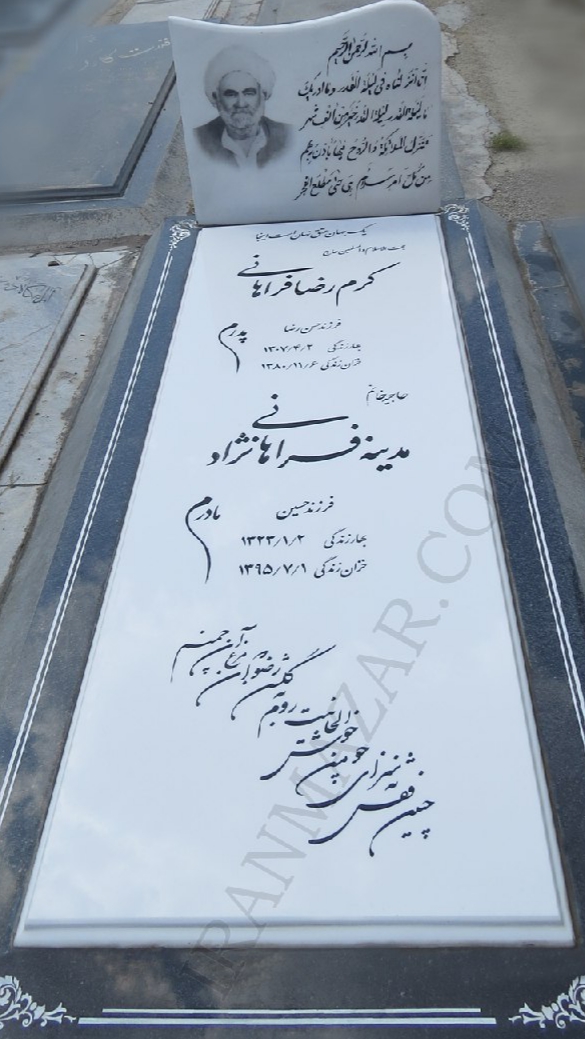 بسم الله الرحمن الرحیم
انا انزلناه فی لیلة القدر وما ادریک
ما لیلة القدر لیلة القدر خیر من الف شهر
تنزل الملائکة والروح فیها باذن ربهم
من کل امر سلام هی حتی مطلع الفجر
یک جهان عشق نهان است اینجا
حجت الاسلام والمسلمین
کرم رضا فراهانی
فرزند حسن رضا
پدرم
بهار زندگی ۱۳۰۷/۴/۲
خزان زندگی ۱۳۸۰/۱۱/۶
حاجیه خانم
مدینه فراهانی نژاد
فرزند حسین
مادرم
بهار زندگی ۱۳۲۳/۱/۲
خزان زندگی ۱۳۹۵/۷/۱
چنین قفس نه سزای چو من خوش الحانیست
روم به گلشن رضوان که مرغ آن چمنم
IRANMAZAR.COM